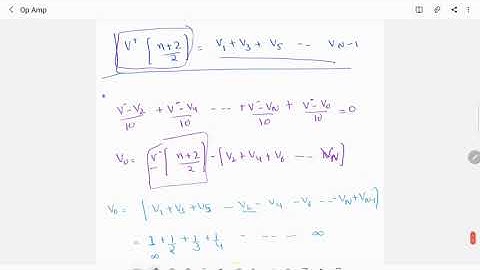 Op Amp
V⁺ [ n+2 / 2 ] = V₁ + V₃ + V₅ -- -- V_N-1
V⁻-V₂ / 10 + V⁻-V₄ / 10 -- -- + V⁻-V_N / 10 + V⁻-V₀ / 10 = 0
V₀ = V⁻ [ n+2 / 2 ] - [ V₂ + V₄ + V₆ -- -- V_N ]
V₀ = [ V₁ + V₃ + V₅ - V₂ - V₄ - V₆ -- -- - V_N + V_N-1 ]
= 1 + 1/2 + 1/3 + 1/4 -- -- -- ∞
∞